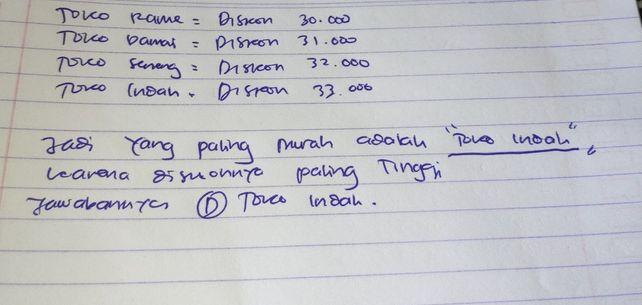 Toko Rame = Diskon 30.000
Toko Damai = Diskon 31.000
Toko seneng = Diskon 32.000
Toko Indah = Diskon 33.000
Jadi Yang paling murah adalah "Toko Indah",
karena diskonnya paling Tinggi
Jawabannya D Toko Indah.